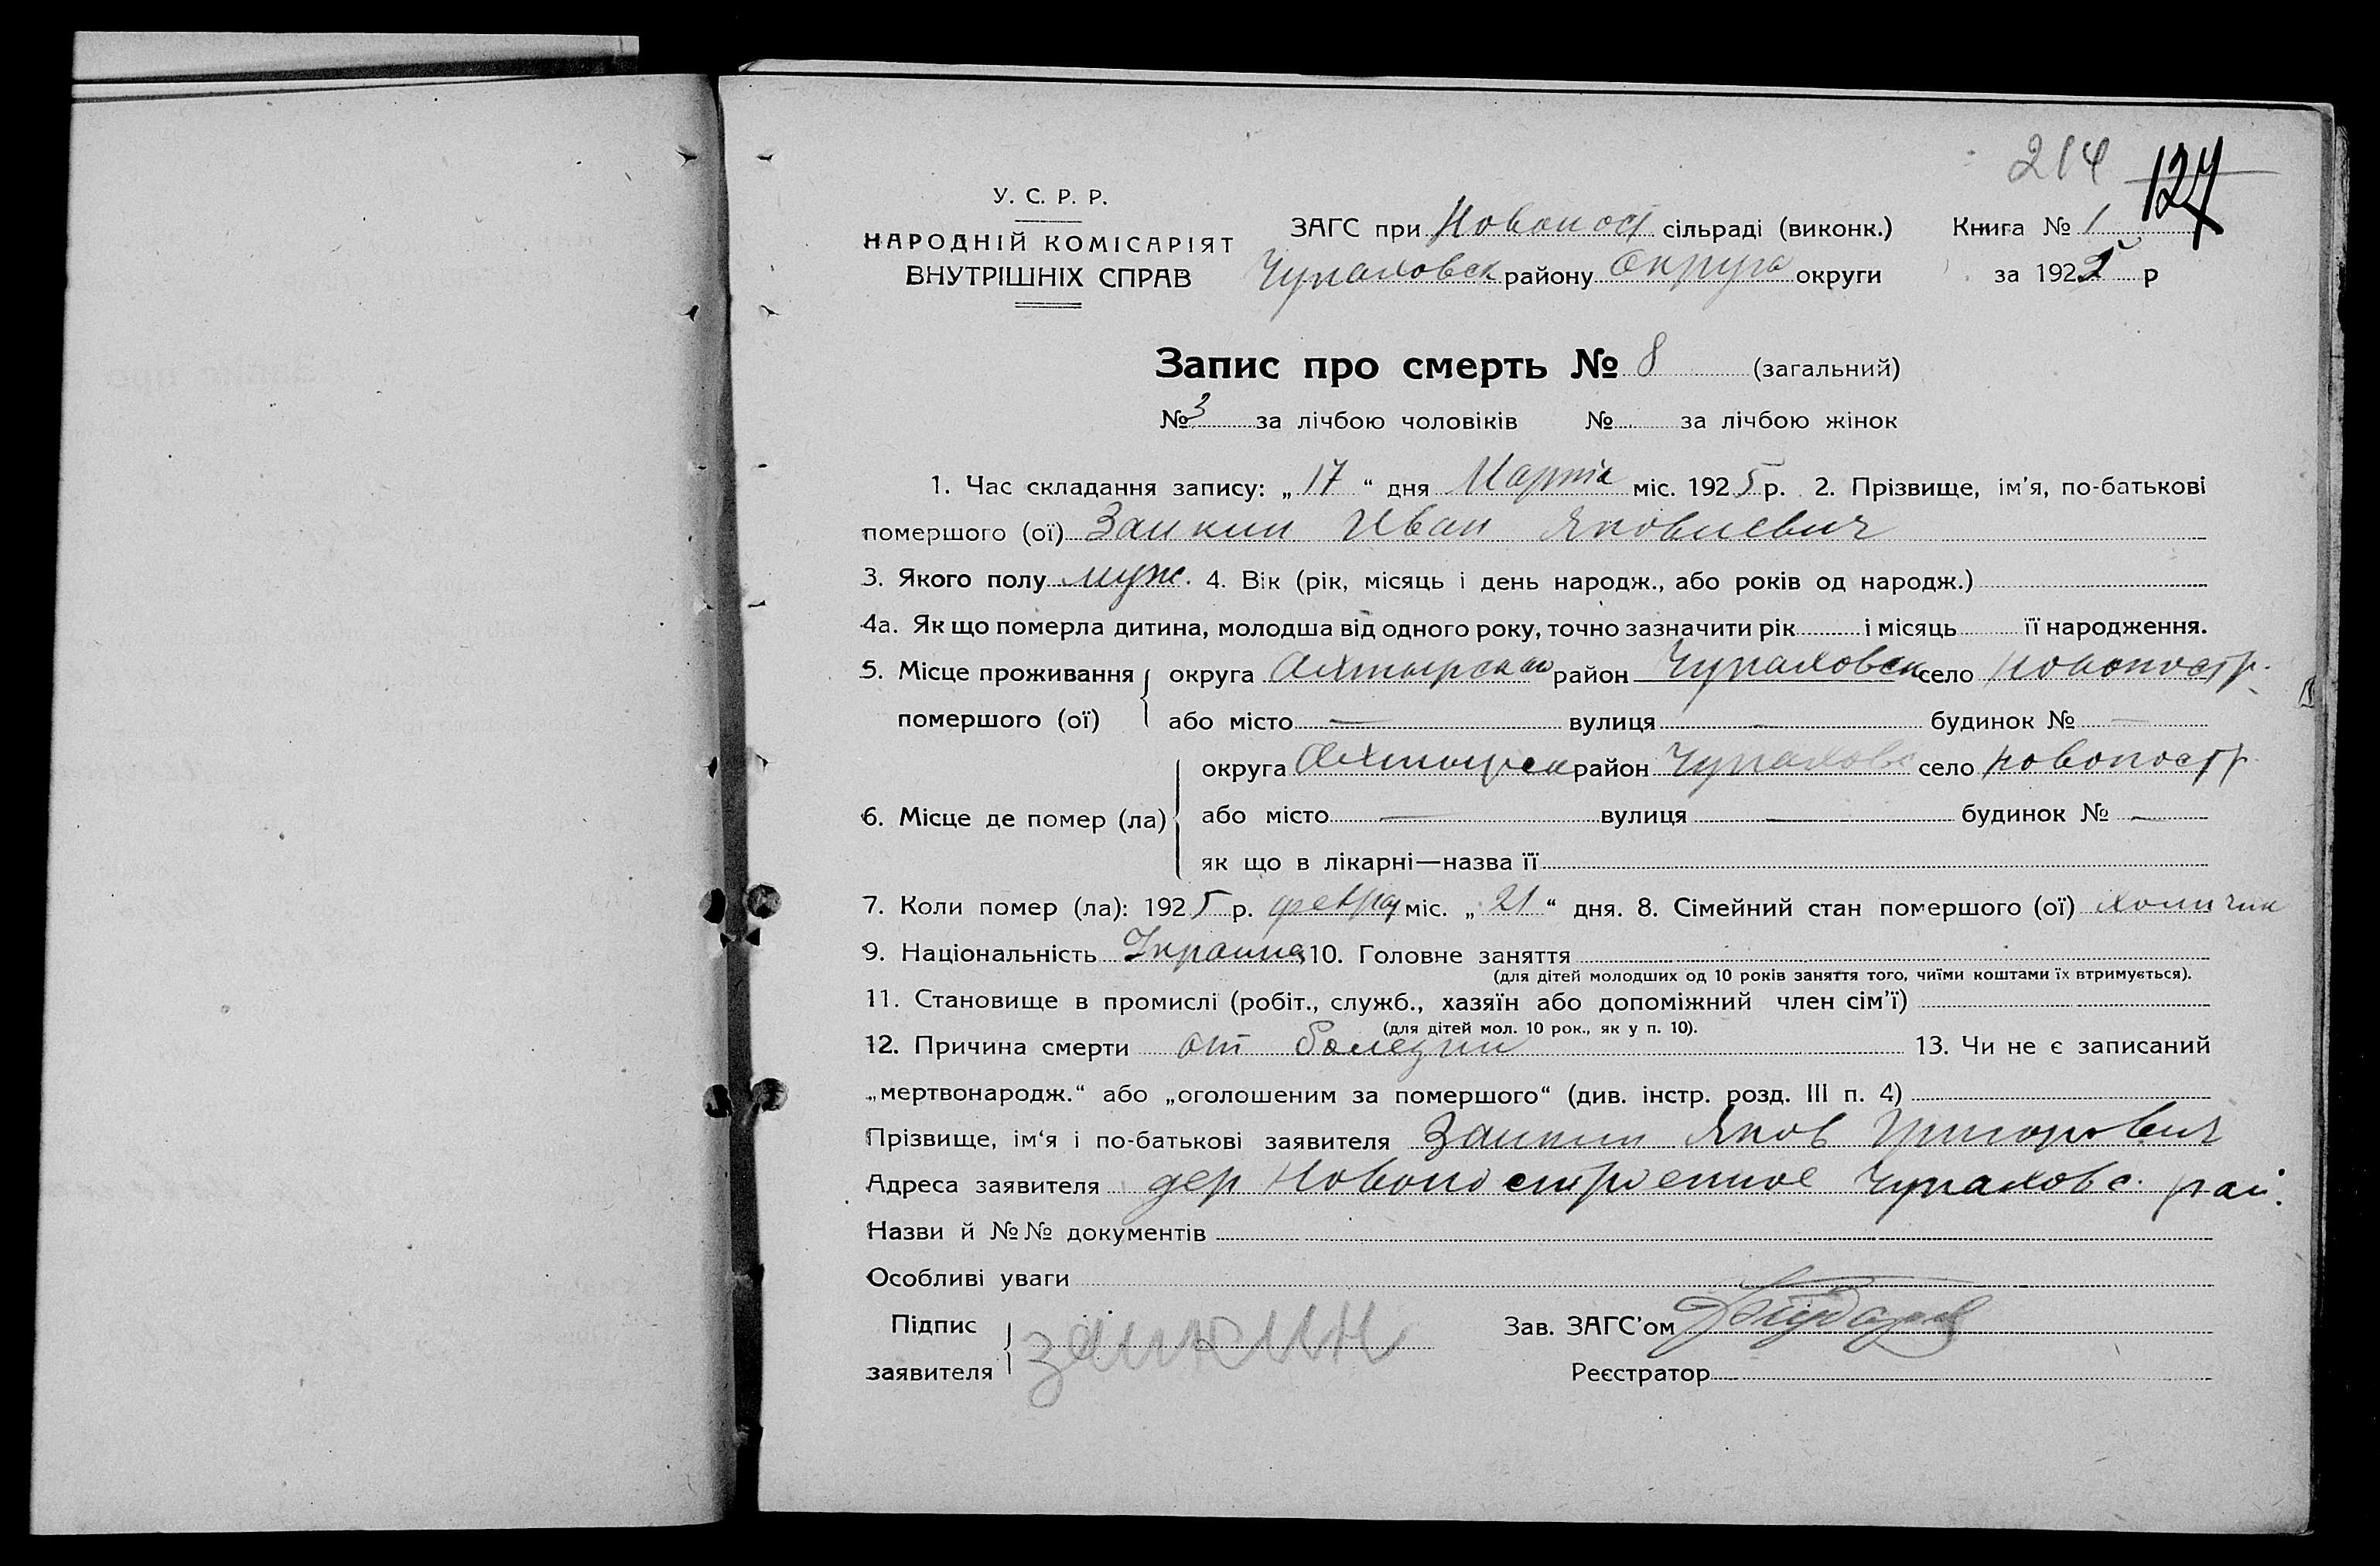 214 127
У. С. Р. Р.
НАРОДНІЙ КОМІСАРІЯТ
ВНУТРІШНІХ СПРАВ
ЗАГС при Новопост сільраді (виконк.) Книга № 1
Чупаховск району Округа округи за 1925 р
Запис про смерть № 8 (загальний)
№ 3 за лічбою чоловіків № за лічбою жінок
1. Час складання запису: „ 17 “ дня Марта міс. 1925 р. 2. Прізвище, ім’я, по-батькові
помершого (ої) Заикин Иван Яковлевич
3. Якого полу муж. 4. Вік (рік, місяць і день народж., або років од народж.)
4а. Як що померла дитина, молодша від одного року, точно зазначити рік і місяць її народження.
5. Місце проживання округа Ахтырская район Чупаховск село Новопостр.
помершого (ої) або місто — вулиця — будинок № —
округа Ахтырск район Чупаховс село Новопостр
6. Місце де помер (ла) або місто — вулиця — будинок № —
як що в лікарні—назва її
7. Коли помер (ла): 1925 р. феврал міс. „ 21 “ дня. 8. Сімейний стан помершого (ої)
9. Національність Украине 10. Головне заняття
(для дітей молодших од 10 років заняття того, чиїми коштами їх втримується).
11. Становище в промислі (робіт., служб., хазяїн або допоміжний член сім’ї)
(для дітей мол. 10 рок., як у п. 10).
12. Причина смерти от болезни 13. Чи не є записаний
„мертвонародж.“ або „оголошеним за помершого“ (див. інстр. розд. III п. 4)
Прізвище, ім‘я і по-батькові заявителя Заикин Яков Григорович
Адреса заявителя дер Новопостроенное Чупаховс. рай.
Назви й №№ документів
Особливі уваги
Підпис
заявителя заикин
Зав. ЗАГС’ом
Реєстратор